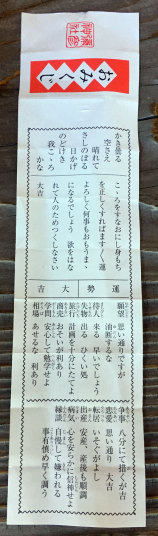 おみくじ
かき曇る
空さえ
晴れて
さしのぼる
日かげ
のどけき
我こゝろ
かな
運勢 大吉
こゝろをすなおにし身もち
を正しくすればます〱運
よろしく何事もおもうまゝ
になるでしょう 欲をはな
れて人のためつくしなさい
大吉
願望 思い通りですが
油断するな
待人 来る 早いでしょう
失物 出る ひくい処
旅行 計画を十分にたてよ
商売 おそいが利あり
学問 安心して勉学せよ
相場 あせるな 利あり
争事 八分にて捨くが吉
恋愛 思い通り 大吉
転居 いそぐがよし
出産 安産、産後も順調
病気 心を安らかに信神せよ
縁談 自慢して嫌われる
事有慎め早く調う